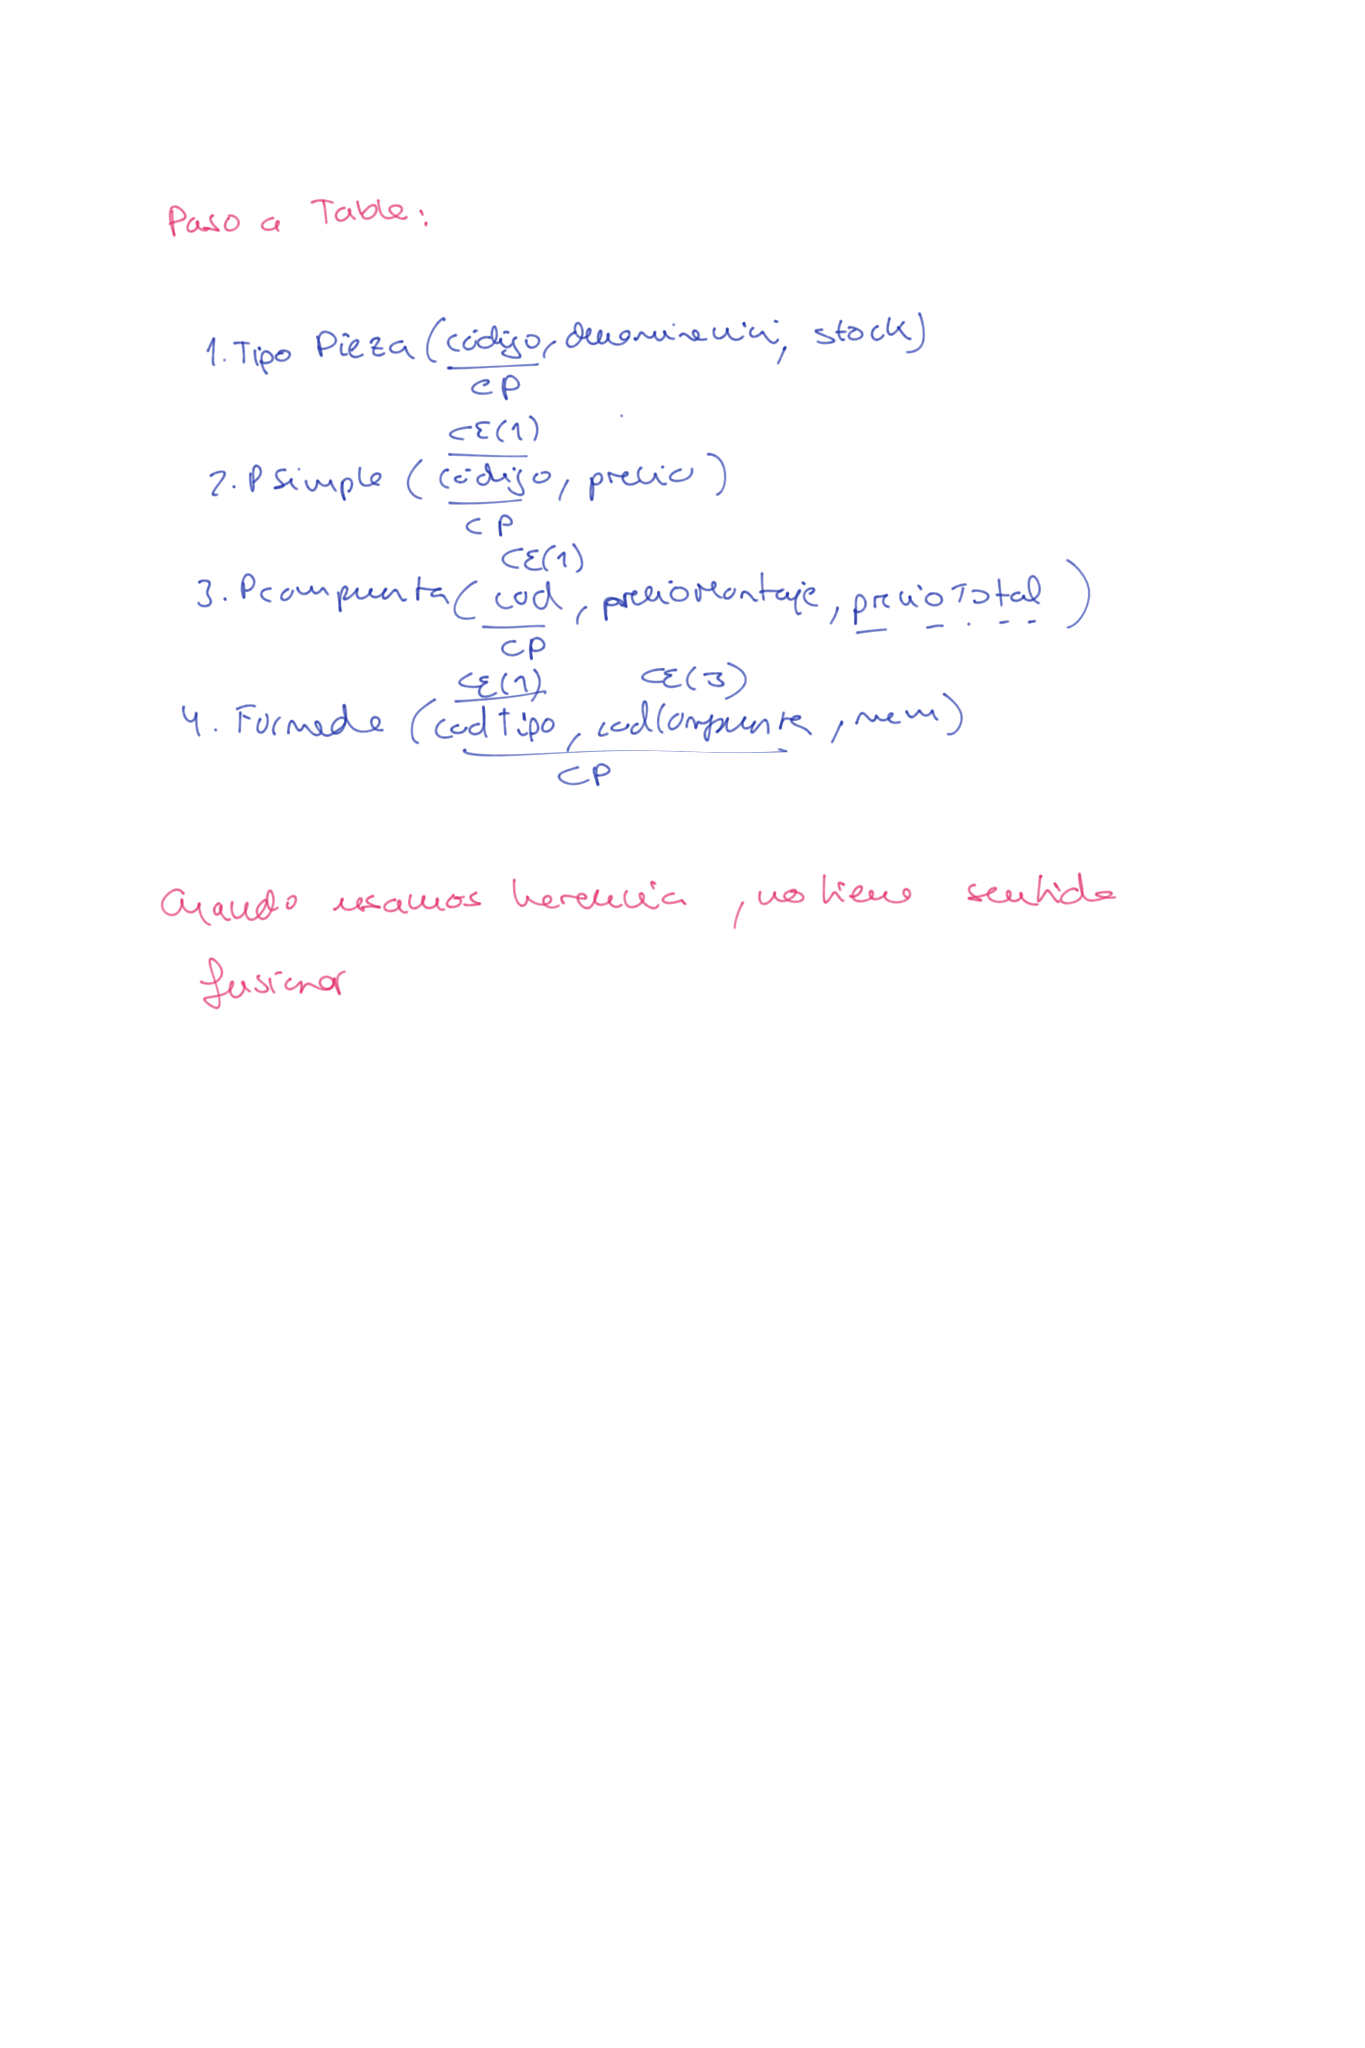 Paso a Tabla:
1. Tipo Pieza (código, denominación, stock)
CP
CE(1)
2. P simple (código, precio)
CP
CE(1)
3. P compuesta (cod, precioMontaje, precioTotal)
CP
CE(1) CE(3)
4. Formada (codTipo, codCompuesta, num)
CP
Cuando usamos herencia, no tiene sentido
fusionar